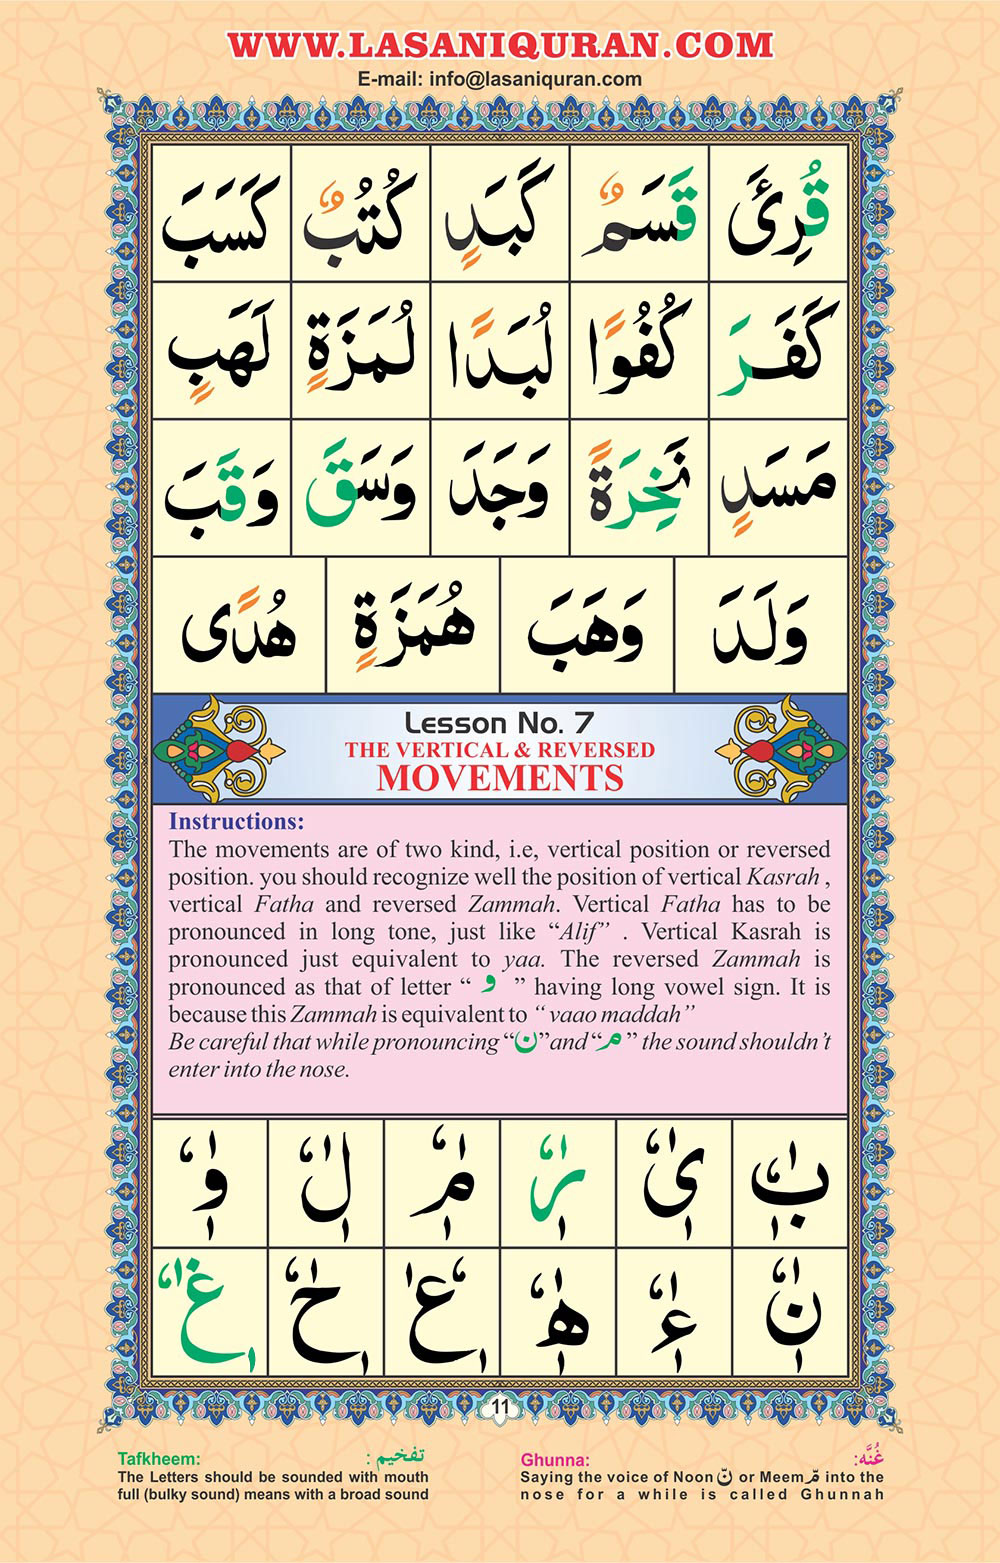 WWW.LASANIQURAN.COM
E-mail: info@lasaniquran.com
قُرِئَ قَسَمٌ كَبَدٍ كُتُبٌ كَسَبَ
كَفَرَ كُفُوًا لُبَدًا لُمَزَةٍ لَهَبٍ
مَسَدٍ نَخِرَةً وَجَدَ وَسَقَ وَقَبَ
وَلَدَ وَهَبَ هُمَزَةٍ هُدًى
Lesson No. 7
THE VERTICAL & REVERSED
MOVEMENTS
Instructions:
The movements are of two kind, i.e, vertical position or reversed
position. you should recognize well the position of vertical Kasrah ,
vertical Fatha and reversed Zammah. Vertical Fatha has to be
pronounced in long tone, just like “Alif” . Vertical Kasrah is
pronounced just equivalent to yaa. The reversed Zammah is
pronounced as that of letter “ و ” having long vowel sign. It is
because this Zammah is equivalent to “ vaao maddah”
Be careful that while pronouncing “ن”and “م” the sound shouldn’t
enter into the nose.
بٰٖٗ یٰٖٗ رٰٖٗ مٰٖٗ لٰٖٗ وٰٖٗ
نٰٖٗ ءٰٖٗ هٰٖٗ عٰٖٗ حٰٖٗ غٰٖٗ
11
Tafkheem: تفخیم :
The Letters should be sounded with mouth
full (bulky sound) means with a broad sound
Ghunna: غُنَّه:
Saying the voice of Noon نّ or Meem مّ into the
nose for a while is called Ghunnah